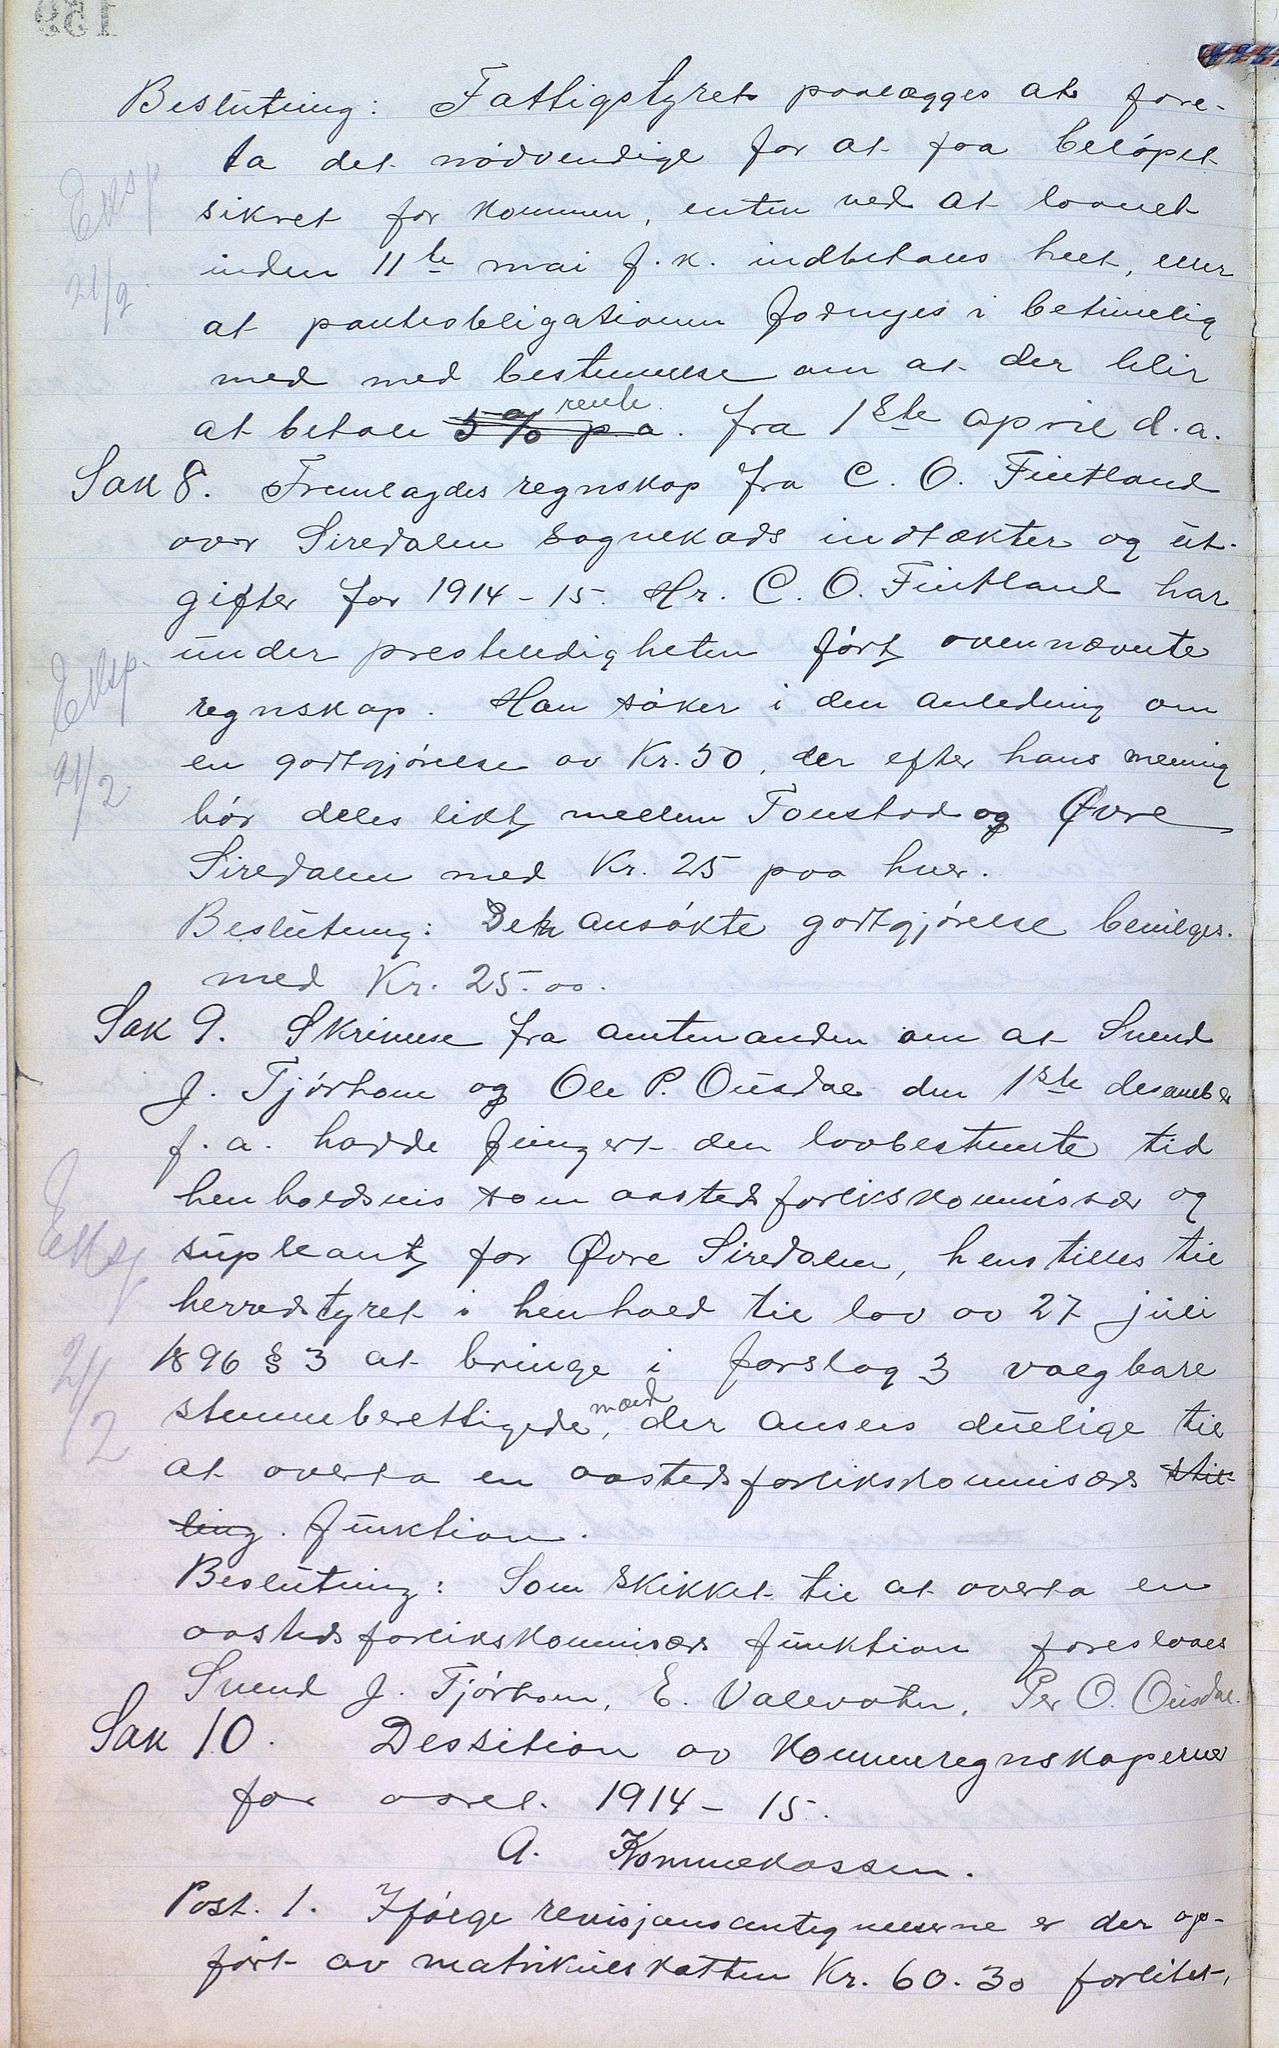 Beslutning: Fattigstyret paalægges at fore-
ta det nødvendige for at faa beløpet
sikret for kommen, enten ved at laanet
inden 11te mai f.k. indbetales helt, eller
at pantobligationen fornyes i betimelig
med med bestemmelse om at der blir
at betale 5 % p a. rente fra 1ste april d.a.
Sak 8. Fremlagdes regnskap fra C. O. Fintland
over Siredalen sognekads indtækter og ut-
gifter for 1914-15. Hr. C. O. Fintland har
under presteledigheten ført ovennævnte
regnskap. Han søker i den anledning om
en godtgjørelse av Kr. 50, der efter hans mening
bør deles likt mellem Tonstad og Øvre
Siredalen med Kr. 25 paa hver.
Beslutning: Den ansøkte godtgjørelse bevilges
med Kr. 25.00.
Sak 9. Skrivelse fra amtmanden om at Svend
J. Tjørhom og Ole P. Ousdal den 1ste desember
f.a. hadde fungert den lovbestemte tid
henholdsvis som aastedsforlikskommissær og
supleant for Øvre Siredalen, henstilles til
herredstyret i henhold til lov av 27 juli
1896 § 3 at bringe i forslag 3 valgbare
stemmeberettigede mænd, der ansees duelige til
at overta en aastedsforlikskommisærs stil-
ling. funktion.
Beslutning: Som skikket til at overta en
aastedsforlikskommisærs funktion foreslaaes
Svend J. Tjørhom, E. Valevatn, Per O. Ousdal.
Sak 10. Dessition av kommuneregnskaperne
for aaret 1914-15.
A. Kommunekassen.
Post. 1. Ifølge revisjonsantegnelserne er der op-
ført av matrikulskatten Kr. 60.30 forlitet,
Eksp.
21/2.
Eksp.
21/2
Eksp
21/2
159